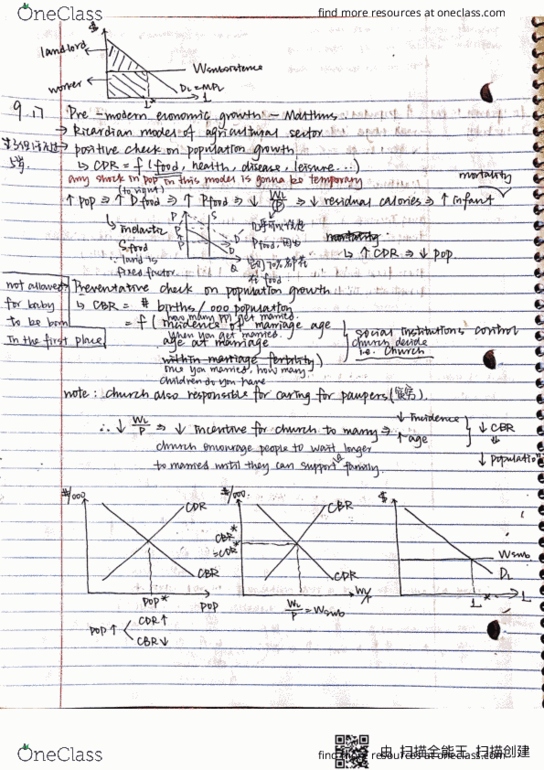 OneClass
find more resources at oneclass.com
$
landlord
Wsubsistence
worker
DL = MPL
L*
L
9.17
Pre-modern economic growth - Malthus
→ Ricardian model of agricultural sector
→ positive check on population growth
↳ CDR = f (food, health, disease, leisure...)
any shock in pop in this model is gonna be temporary
(to right)
mortality
↑ pop ⇒ ↑ Dfood ⇒ ↑ Pfood ⇒ ↓ WL/P ⇒ ↓ residual calories ⇒ ↑ infant
↳ inelastic
Sfood
∵ land is
fixed factor
P
S
D'
D
Q
mortality
↳ ↑ CDR ⇒ ↓ pop.
not allowed
for baby
to be born
in the first place
Preventative check on population growth
↳ CBR = # births / 000 population
how many ppl get married
= f ( incidence of marriage age
when you get married
age at marriage
within marriage fertility)
once you married, how many
children do you have
social institutions control
church decide
i.e. church
note: church also responsible for caring for paupers (
∴ ↓ WL/P ⇒ ↓ incentive for church to marry ⇒
↓ incidence
↑ age
↓ CBR
⇓
↓ population
church encourage people to wait longer
to married until they can support family.
#/000
CDR
CBR
POP*
POP
#/000
CBR*
=CDR*
CBR
CDR
WL/P
WL/P = Wsub
$
Wsub
DL
L*
L
POP ↑
CDR ↑
CBR ↓
OneClass
find more resources at oneclass.com
由 扫描全能王 扫描创建